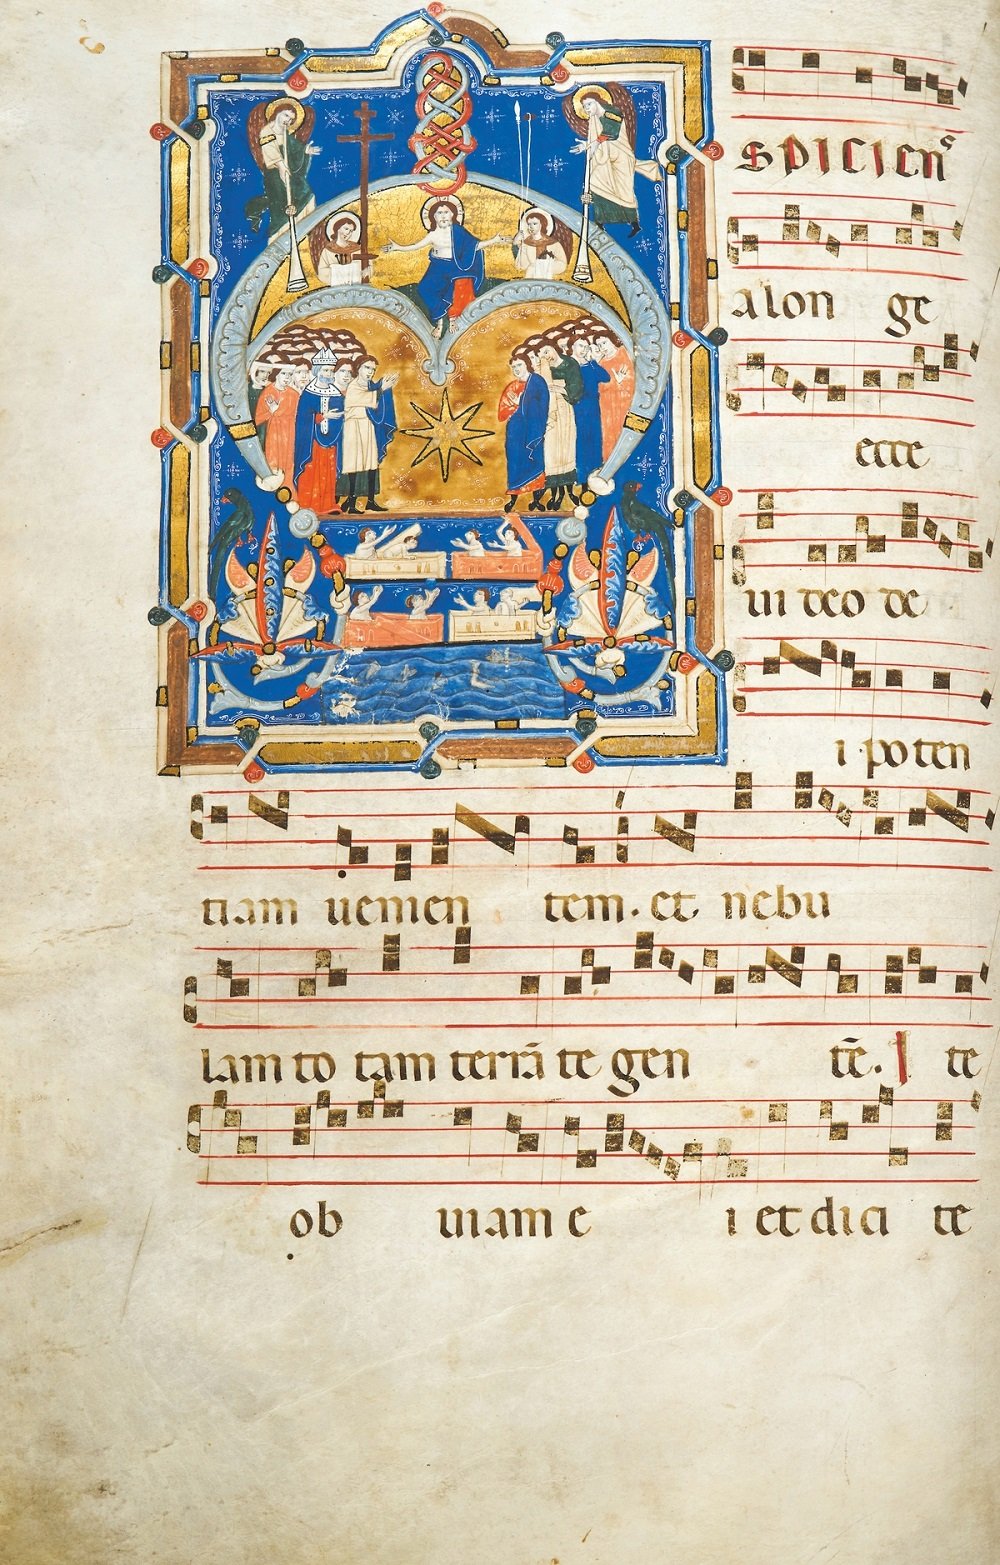 SPICIENS
alon ge
ecce
ui deo de
i poten
tiam uenien tem. et nebu
lam to tam terrā te gen tē. I te
ob uiam e i et dici te